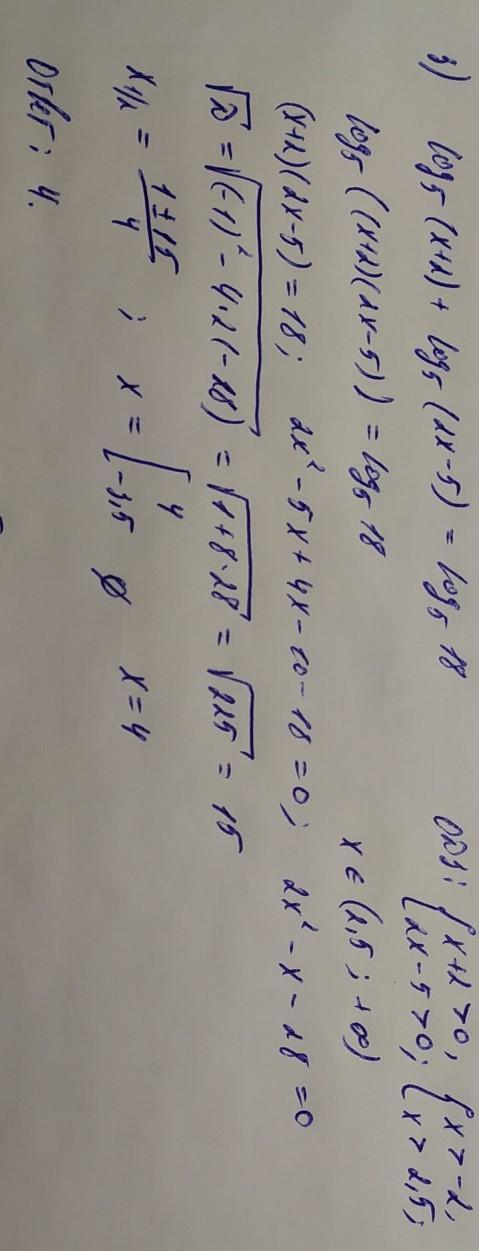 3) log₅(x+2) + log₅(2x-5) = log₅18 ОДЗ: { x+2>0, 2x-5>0; { x>-2, x>2,5;
log₅((x+2)(2x-5)) = log₅18 x ∈ (2,5; +∞)
(x+2)(2x-5) = 18; 2x²-5x+4x-10-18=0; 2x²-x-28=0
√D = √((-1)²-4·2(-28)) = √(1+8·28) = √225 = 15
x₁,₂ = (1±15)/4 ; x = [ 4 -3,5 ∅ x=4
Ответ: 4.